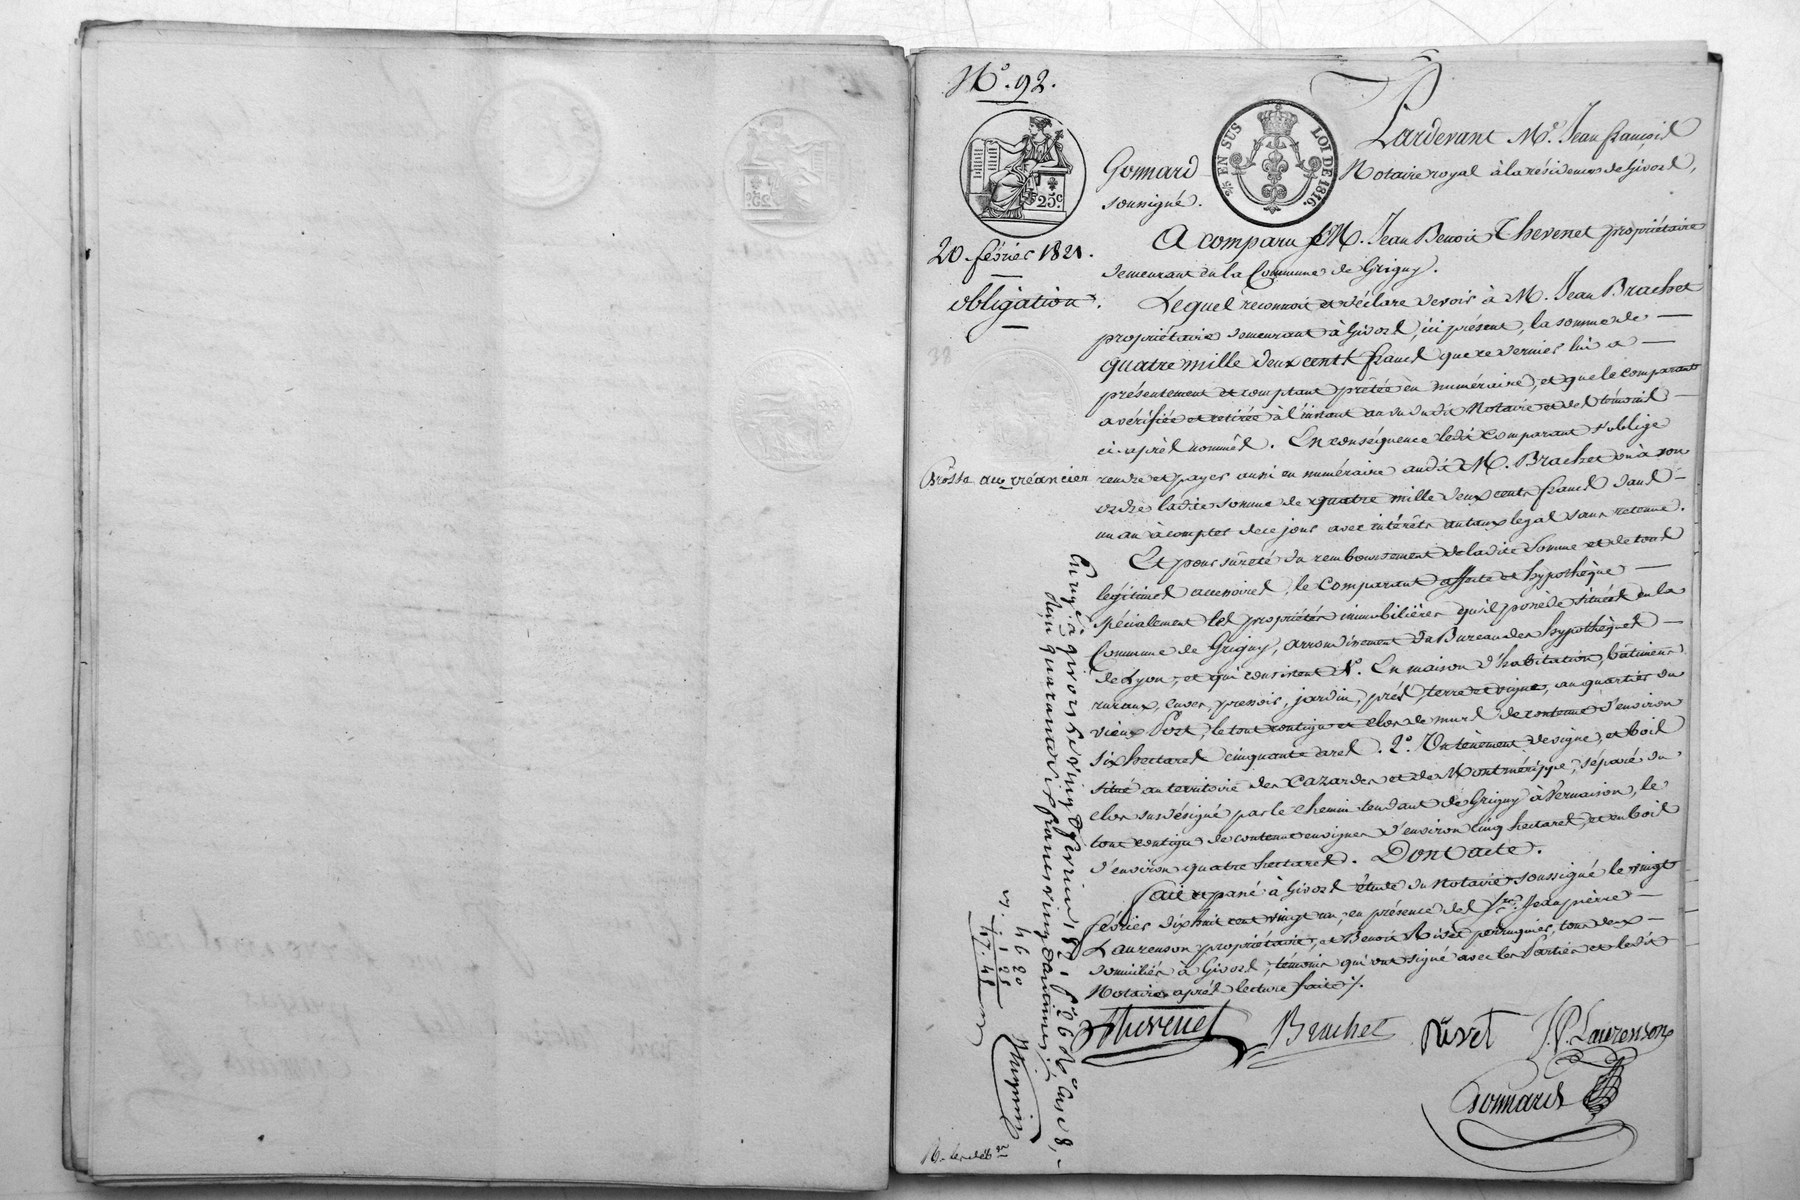 N.º 92.
25 c
2/10 EN SUS LOI DE 1816.
20 février 1821.
obligation.
38
Grosse au créancier
Pardevant Mᵉ. Jean françois
Gonnard Notaire royal à la résidence de Givors,
soussigné.
A comparu M. Jean Benoit Thevenet propriétaire
demeurant en la Commune de Grigny.
Lequel reconnoit et déclare devoir à M. Jean Brachet
propriétaire demeurant à Givors, ici présent, la somme de
quatre mille deux cents francs que ce dernier lui a
présentement et comptant prêtée en numéraire, et que le comparant
a vérifiée et retirée à l'instant au vu dudit Notaire et des témoins
ci-après nommés. En conséquence ledit comparant s'oblige
rendre et payer aussi en numéraire audit M. Brachet ou à son
ordre ladite somme de quatre mille deux cents francs dans
un an à compter de ce jour avec intérêts au taux légal sans retenue.
Et pour sûreté du remboursement de ladite somme et de tous
légitimes accessoires, le comparant affecte et hypothèque
spécialement les propriétés immobilières qu'il possède situées en la
Commune de Grigny, arrondissement du Bureau des hypothèques
de Lyon, et qui consistent 1º. En maison d'habitation, bâtimens
ruraux, cuves, pressoir, jardin, prés, terre et vigne, au quartier du
vieux Port, le tout contigu et clos de murs de contenue d'environ
six hectares cinquante ares. 2º. Un tènement de vigne, et bois
situé au territoire des Cazardes et de Montmérippe, séparé du
clos susdésigné par le chemin tendant de Grigny à Vernaison, le
tout contigu de contenue en vignes d'environ cinq hectares, et en bois
d'environ quatre hectares. Dont acte.
Fait et passé à Givors étude du Notaire soussigné le vingt
février dix huit cent vingt un, en présence des Srs. Jean pierre
Laurenson propriétaire, et Benoit Rivet perruquier, tous deux
domiciliés à Givors, témoins qui ont signé avec les Parties et ledit
Notaire après lecture faite /.
Thevenet Brachet Rivet J. P. Laurenson
Gonnard
Enregé à givors le vingt février 1821 fº 26 Rº Case 8,
reçu quarante six francs vingt centimes.
46 20
1 25
47. 45